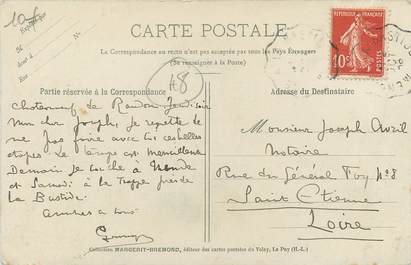 10f
Expédié par
M
dem! à
Rue
No
CARTE POSTALE
La Correspondance au recto n'est pas acceptée par tous les Pays Étrangers
(Se renseigner à la Poste)
RÉPUBLIQUE FRANÇAISE
10c
POSTES
48
Partie réservée à la Correspondance
Adresse du Destinataire
Chateauneuf de Randon Jeudi soir
Mon cher Joseph, Je regrette de
ne pas faire avec toi ces belles
étapes le temps est merveilleux
Demain Je couche à Mende
et Samedi à la Trappe près de
La Bastide.
amitiés à tous
Monsieur Joseph Avril
Notaire
Rue du Général Foy nº 8
Saint Etienne
Loire
Collection MARGERIT-BREMOND, éditeur des cartes postales du Velay, Le Puy (H.-L.)